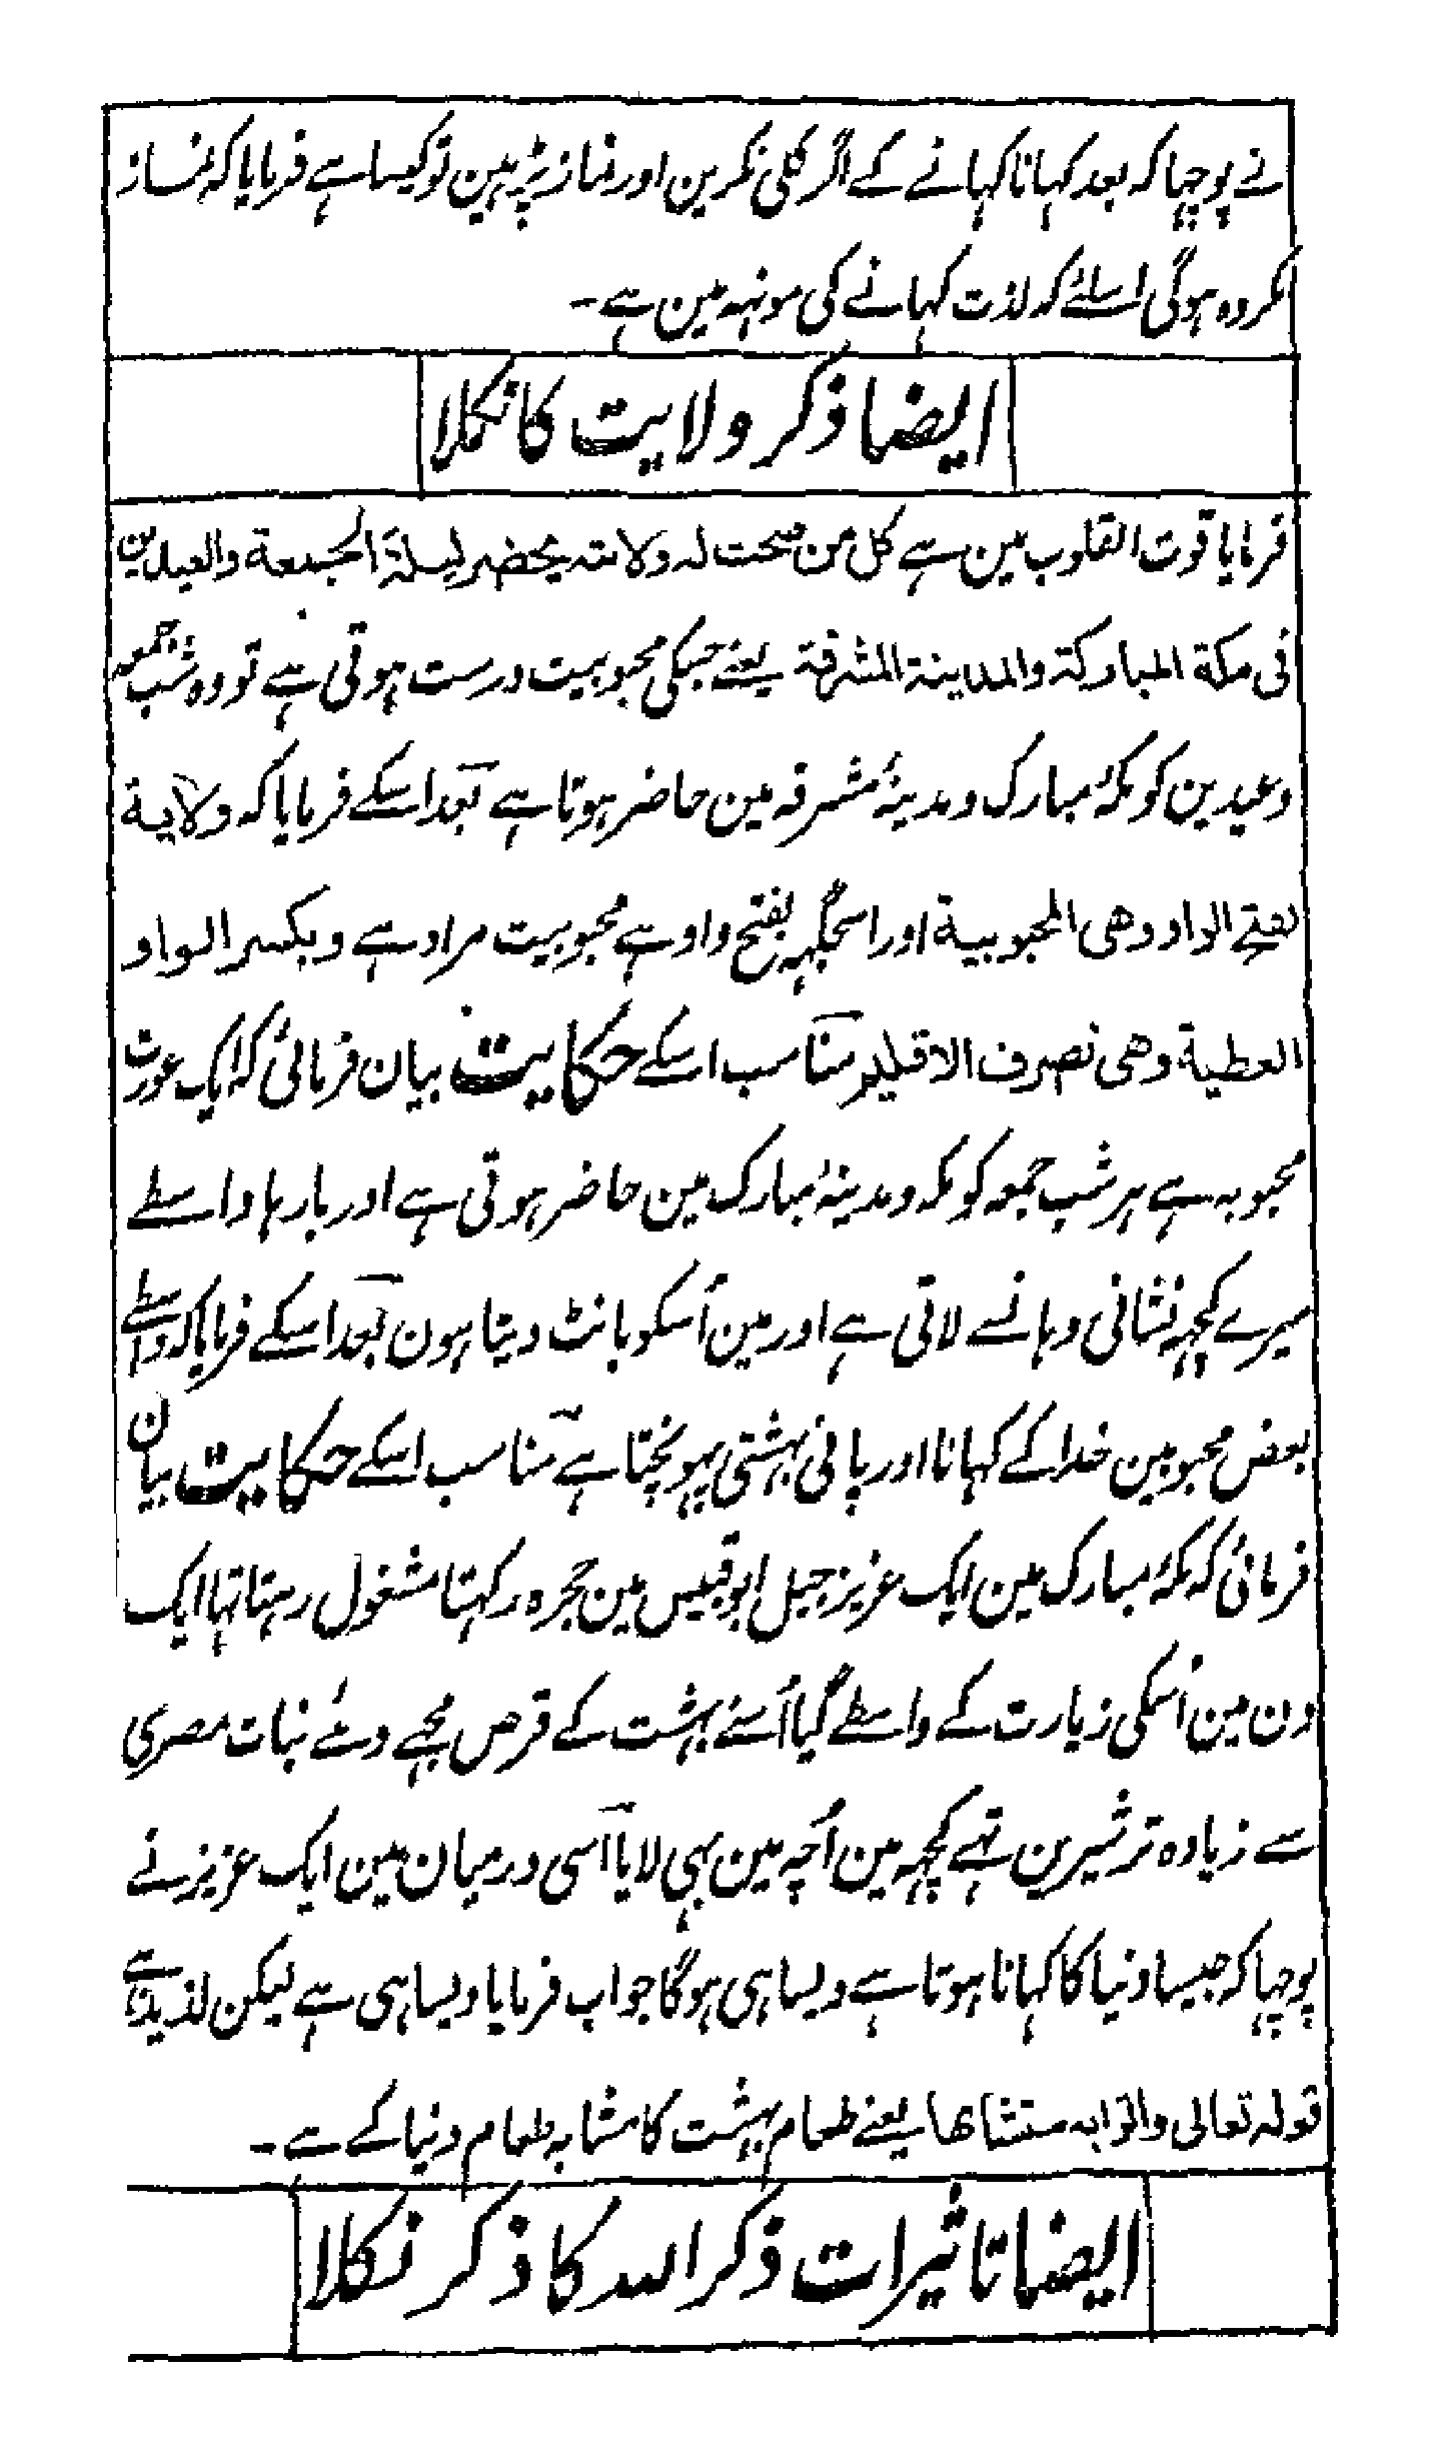 نے پوچہا کہ بعد کہانا کہانے کے اگر کلی نکرین اور نماز پڑہین تو کیسا ہے فرمایا کہ نماز
مکروہ ہوگی اسلئے کہ لذت کہانے کی مونہہ مین ہے۔
ایضا ذکر ولایت کا نکلا
فرمایا قوت القلوب مین ہے کل من صحت له ولایته یحضر لیلة الجمعة والعیدین
فی مکة المبارکة والمدینة المشرفة یعنے جسکی محبوبیت درست ہوتی ہے تو وہ شب جمعہ
وعیدین کو مکۂ مبارک و مدینۂ مشرفہ مین حاضر ہوتا ہے بعد اسکے فرمایا کہ ولایة
بفتح الواو وهی المحبوبیة اور اسجگہہ بفتح واو ہے محبوبیت مراد ہے وبکسر الواو
العطیة وهی تصرف الاقلیم مناسب اسکے حکایت بیان فرمائی کہ ایک عورت
محبوبہ ہے ہر شب جمعہ کو مکہ و مدینۂ مبارک مین حاضر ہوتی ہے اور بارہا واسطے
میرے کچہہ نشانی وہانسے لاتی ہے اور مین اُسکو بانٹ دیتا ہون بعد اسکے فرمایا کہ واسطے
بعض محبوبین خدا کے کہانا اور پانی بہشتی پہونچتا ہے مناسب اسکے حکایت بیان
فرمائی کہ مکۂ مبارک مین ایک عزیز جبل ابو قبیس مین حجرہ رکہتا مشغول رہتا تہا ایک
دن مین اُسکی زیارت کے واسطے گیا اُسنے بہشت کے قرص مجہے دئے نبات مصری
سے زیادہ تر شیرین تہے کچہہ مین اُچہ مین بہی لایا اسی درمیان مین ایک عزیز نے
پوچہا کہ جیسا دنیا کا کہانا ہوتا ہے ویسا ہی ہوگا جواب فرمایا ویسا ہی ہے لیکن لذیذ ہے
قوله تعالی واتوا به متشابها یعنے طعام بہشت کا مشابہ طعام دنیا کے ہے۔
ایضا تاثیرات ذکر اللہ کا ذکر نکلا